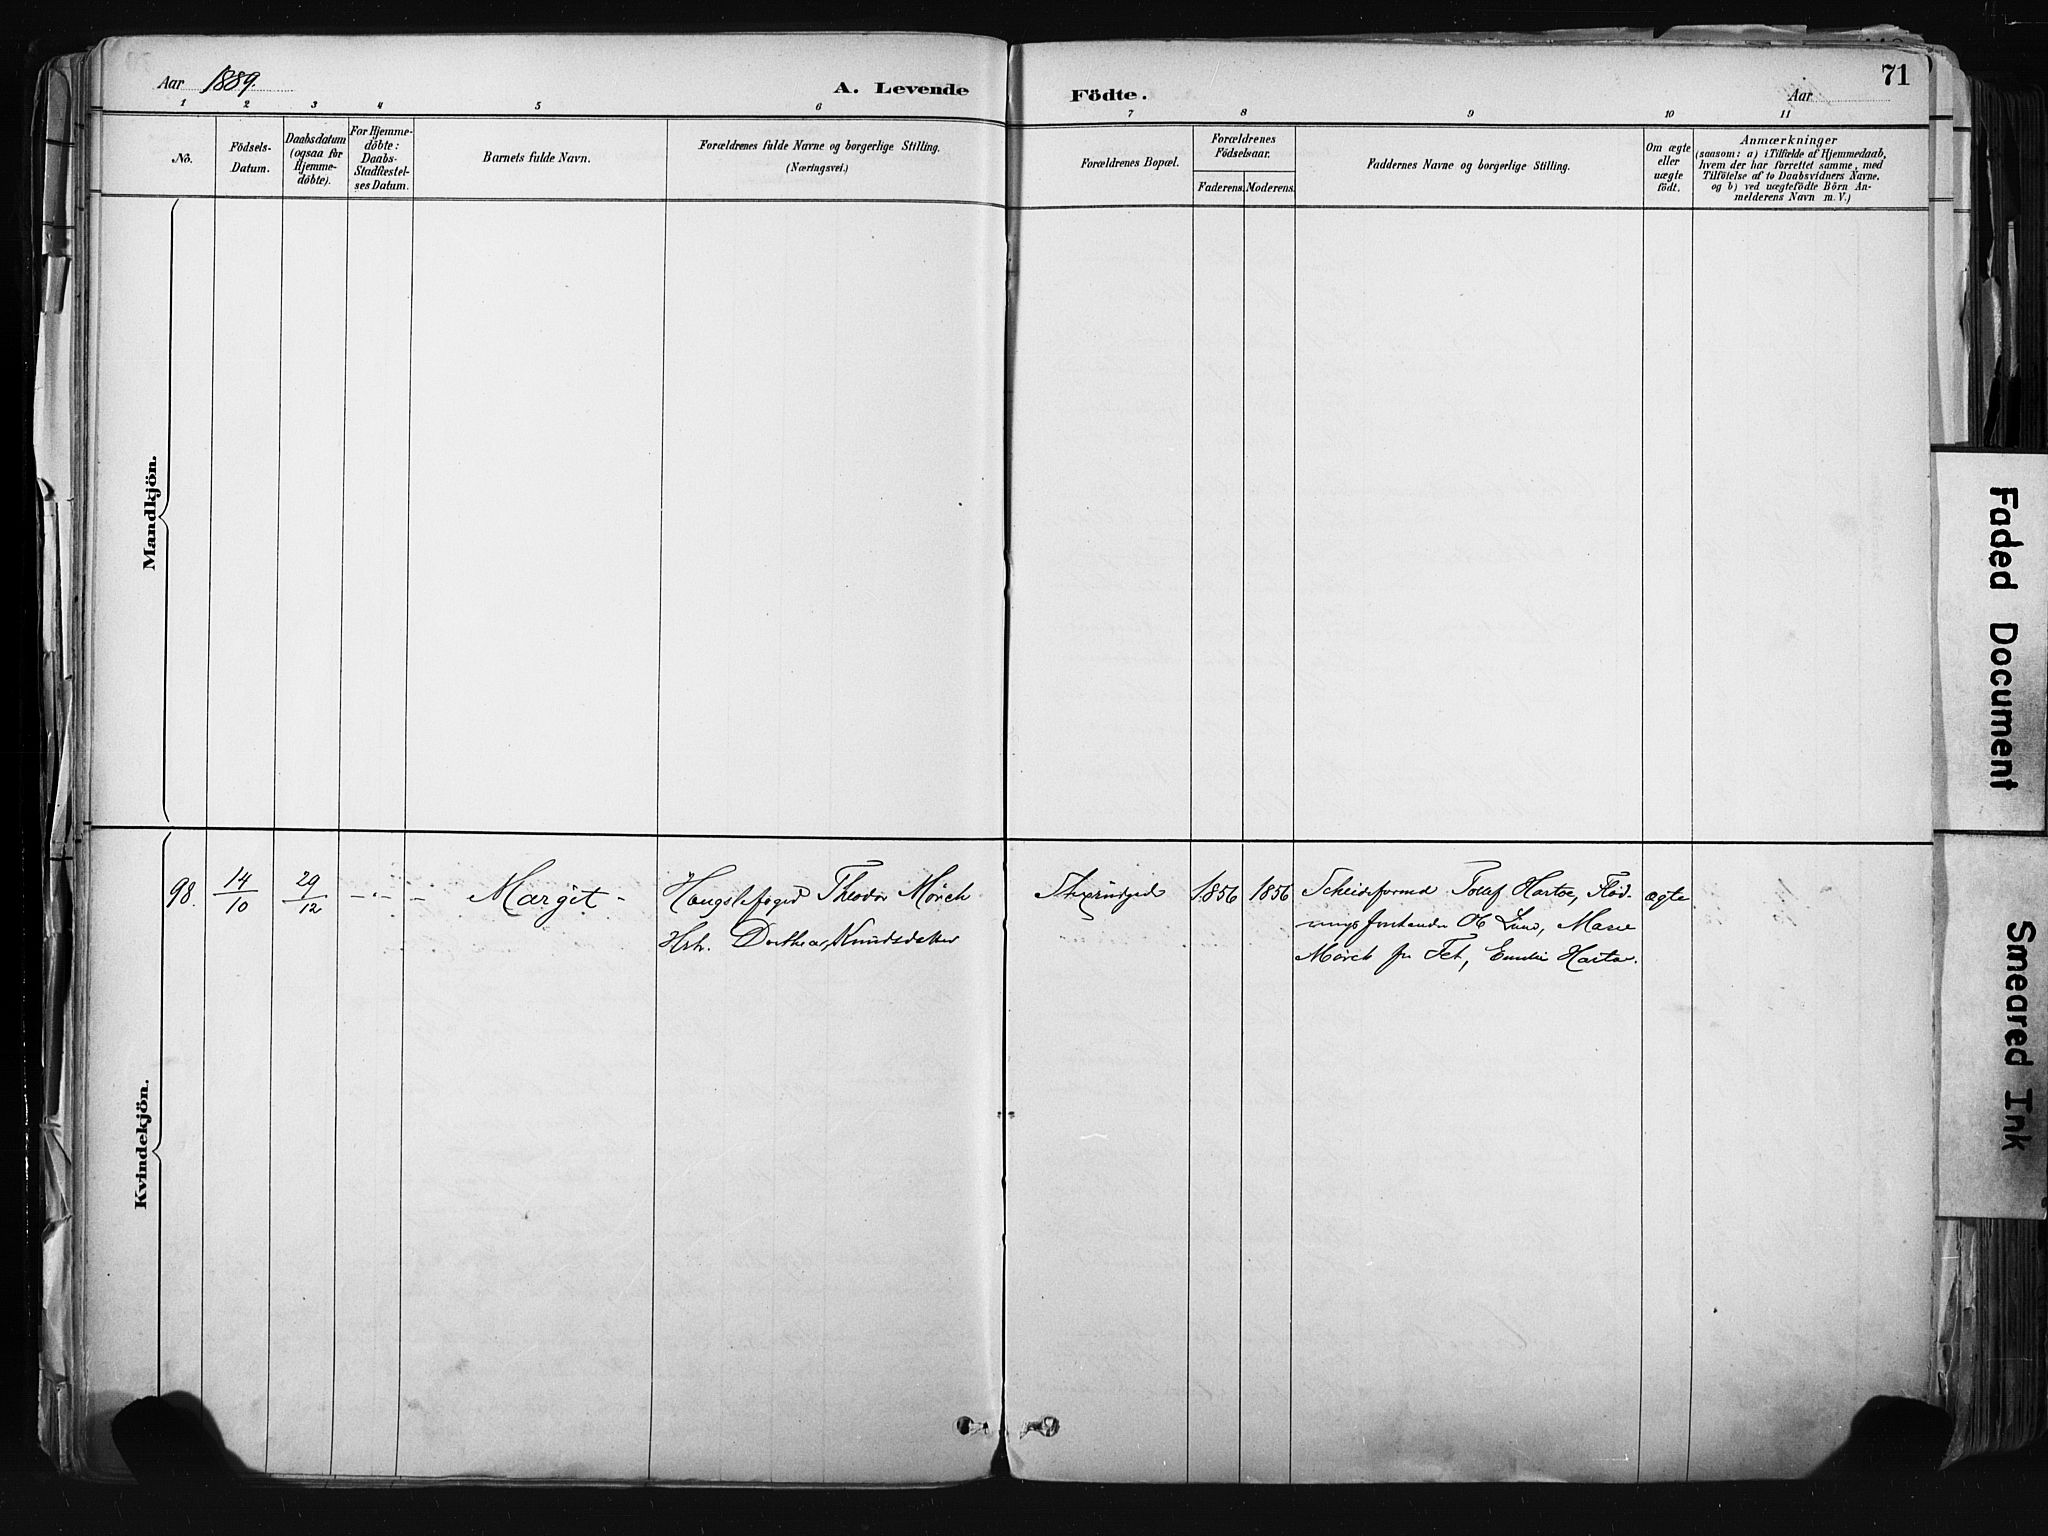 Aar 1889.
A. Levende
Födte.
Aar
71
1 2 3 4 5 6 7 8 9 10 11
No.
Födsels-
Datum.
Daabsdatum
(ogsaa for
Hjemme-
døbte).
For Hjemme-
døbte:
Daabs-
Stadfæstel-
ses Datum.
Barnets fulde Navn.
Forældrenes fulde Navne og borgerlige Stilling.
(Næringsvei.)
Forældrenes Bopæl.
Forældrenes
Födselsaar.
Faderens. Moderens.
Faddernes Navne og borgerlige Stilling.
Om ægte
eller
uægte
født.
Anmærkninger
(saasom: a) i Tilfælde af Hjemmedaab,
hvem der har forrettet samme, med
Tilföielse af to Daabsvidners Navne.
og b) ved uægtefödte Börn An-
melderens Navn m. V.)
Mandkjön.
Kvindekjön.
98. 14/10 29/12 Margit
Theodor Mørch
Hstr. Dorthea Knudsdatter
1856 1856
Hartoe, Flød-
Lund, Marie
Mørch fr Fet, Emilie Hartoe.
ægte
Faded Document
Smeared Ink